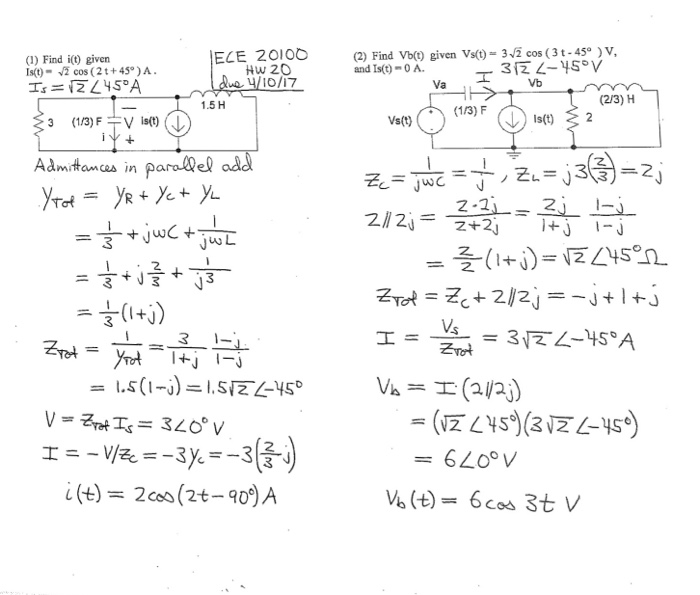 (1) Find i(t) given
Is(t) = √2 cos (2 t + 45° ) A.
I_s = √2 ∠45° A
ECE 20100
HW 20
due 4/10/17
1.5 H
3 (1/3) F V Is(t)
− + i
Admittances in parallel add
Y_Tot = Y_R + Y_C + Y_L
= 1/3 + jωC + 1/jωL
= 1/3 + j 2/3 + 1/j3
= 1/3 (1+j)
Z_Tot = 1/Y_Tot = 3/(1+j) (1-j)/(1-j)
= 1.5(1-j) = 1.5√2 ∠-45°
V = Z_Tot I_s = 3∠0° V
I = -V/Z_C = -3Y_C = -3(2/3 j)
i(t) = 2cos(2t-90°) A
(2) Find Vb(t) given Vs(t) = 3√2 cos ( 3 t - 45° ) V,
and Is(t) = 0 A.
3√2 ∠-45° V
I
Va Vb
(1/3) F (2/3) H
Vs(t) Is(t) 2
Z_C = 1/jωC = 1/j , Z_L = j3(2/3) = 2j
2//2j = 2·2j/(2+2j) = 2j/(1+j) (1-j)/(1-j)
= 2/2 (1+j) = √2 ∠45° Ω
Z_Tot = Z_C + 2//2j = -j+1+j
I = V_s/Z_Tot = 3√2 ∠-45° A
V_b = I·(2//2j)
= (√2 ∠45°)(3√2 ∠-45°)
= 6∠0° V
V_b(t) = 6 cos 3t V